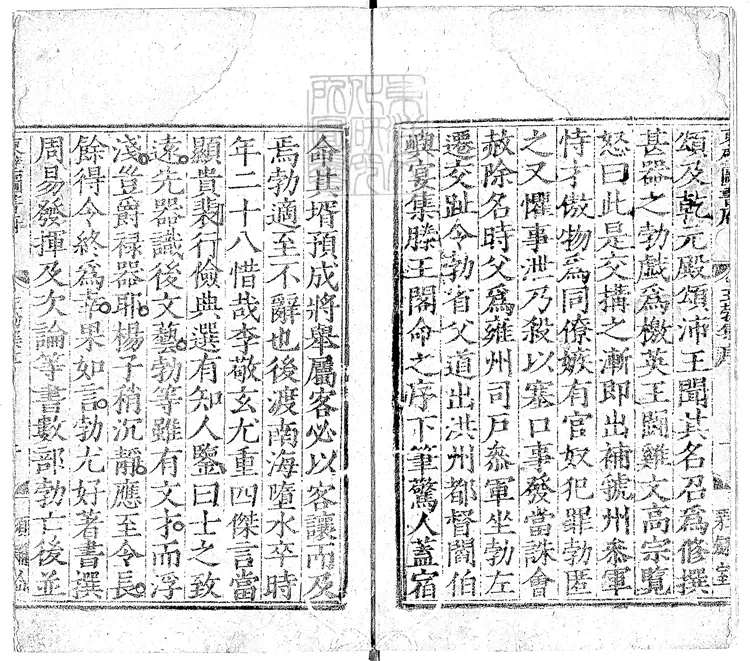 頌及乾元殿頌沛王聞其名召為修撰
甚器之勃戲為檄英王鬪雞文高宗覽
怒曰此是交搆之漸即出補虢州叅軍
恃才傲物為同僚嫉有官奴犯罪勃匿
之又懼事泄乃殺以塞口事發當誅會
赦除名時父為雍州司戶叅軍坐勃左
遷交趾令勃省父道出洪州都督閻伯
嶼宴集滕王閣命之序下筆驚人蓋宿
命其壻預成將舉屬客必以客讓而及
焉勃適至不辭也後渡南海墮水卒時
年二十八惜哉李敬玄尤重四傑言當
顯貴裴行儉典選有知人鑒曰士之致
遠先器識後文藝勃等雖有文才而浮
淺豈爵祿器耶楊子稍沉靜應至令長
餘得令終為幸果如言勃尤好著書撰
周易發揮及次論等書數部勃亡後並